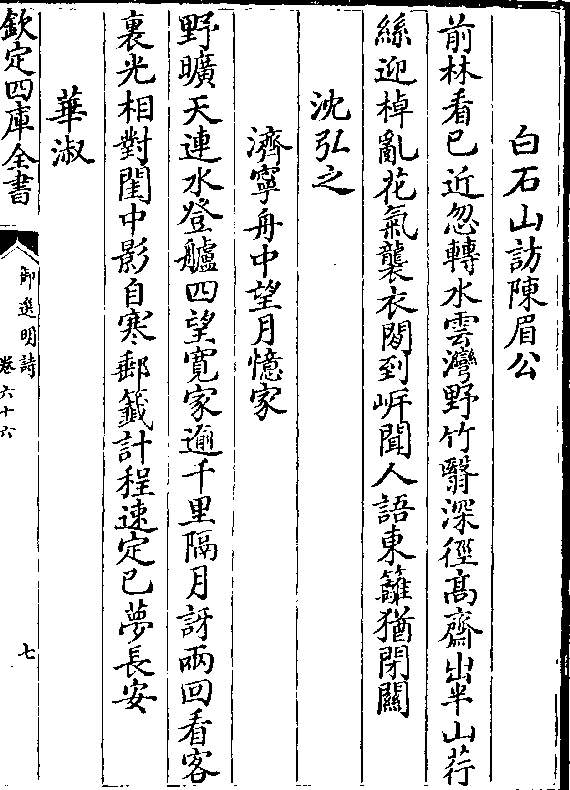 白石山訪陳眉公
前林看已近忽轉水雲灣野竹翳深徑髙齋出半山荇
絲迎棹亂花氣襲衣閒到岍聞人語東籬猶閉關
沈弘之
濟寧舟中望月憶家
野曠天連水登艫四望寛家逾千里隔月訝兩回看客
裏光相對閨中影自寒郵籤計程速定已夢長安
華淑
欽定四庫全書
御選明詩
卷六十六
七